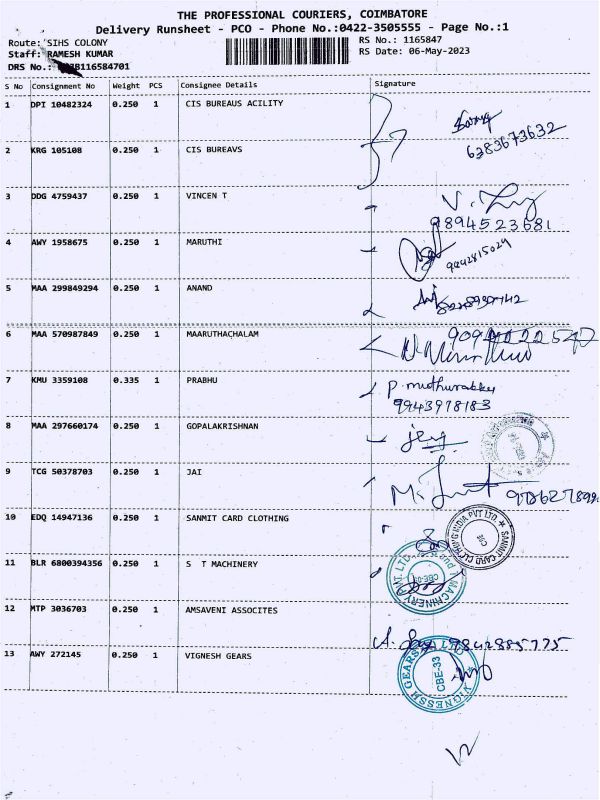 THE PROFESSIONAL COURIERS, COIMBATORE
Delivery Runsheet - PCO - Phone No.:0422-3505555 - Page No.:1
Route: SIHS COLONY
RS No.: 1165847
Staff: RAMESH KUMAR
RS Date: 06-May-2023
DRS No.: B116584701
S No Consignment No Weight PCS Consignee Details Signature
1 DPI 10482324 0.250 1 CIS BUREAUS ACILITY
6383673632
2 KRG 105108 0.250 1 CIS BUREAVS
3 DDG 4759437 0.250 1 VINCEN T
9894523681
4 AWY 1958675 0.250 1 MARUTHI
9442815029
5 MAA 299849294 0.250 1 ANAND
6 MAA 570987849 0.250 1 MAARUTHACHALAM
7 KMU 3359108 0.335 1 PRABHU
9943978183
8 MAA 297660174 0.250 1 GOPALAKRISHNAN
9 TCG 50378703 0.250 1 JAI
10 EDQ 14947136 0.250 1 SANMIT CARD CLOTHING
SANMIT CARD CLOTHING INDIA PVT LTD CBE
11 BLR 6800394356 0.250 1 S T MACHINERY
MACHINERY PVT. LTD.
12 MTP 3036703 0.250 1 AMSAVENI ASSOCITES
9842885775
13 AWY 272145 0.250 1 VIGNESH GEARS
CBE-33